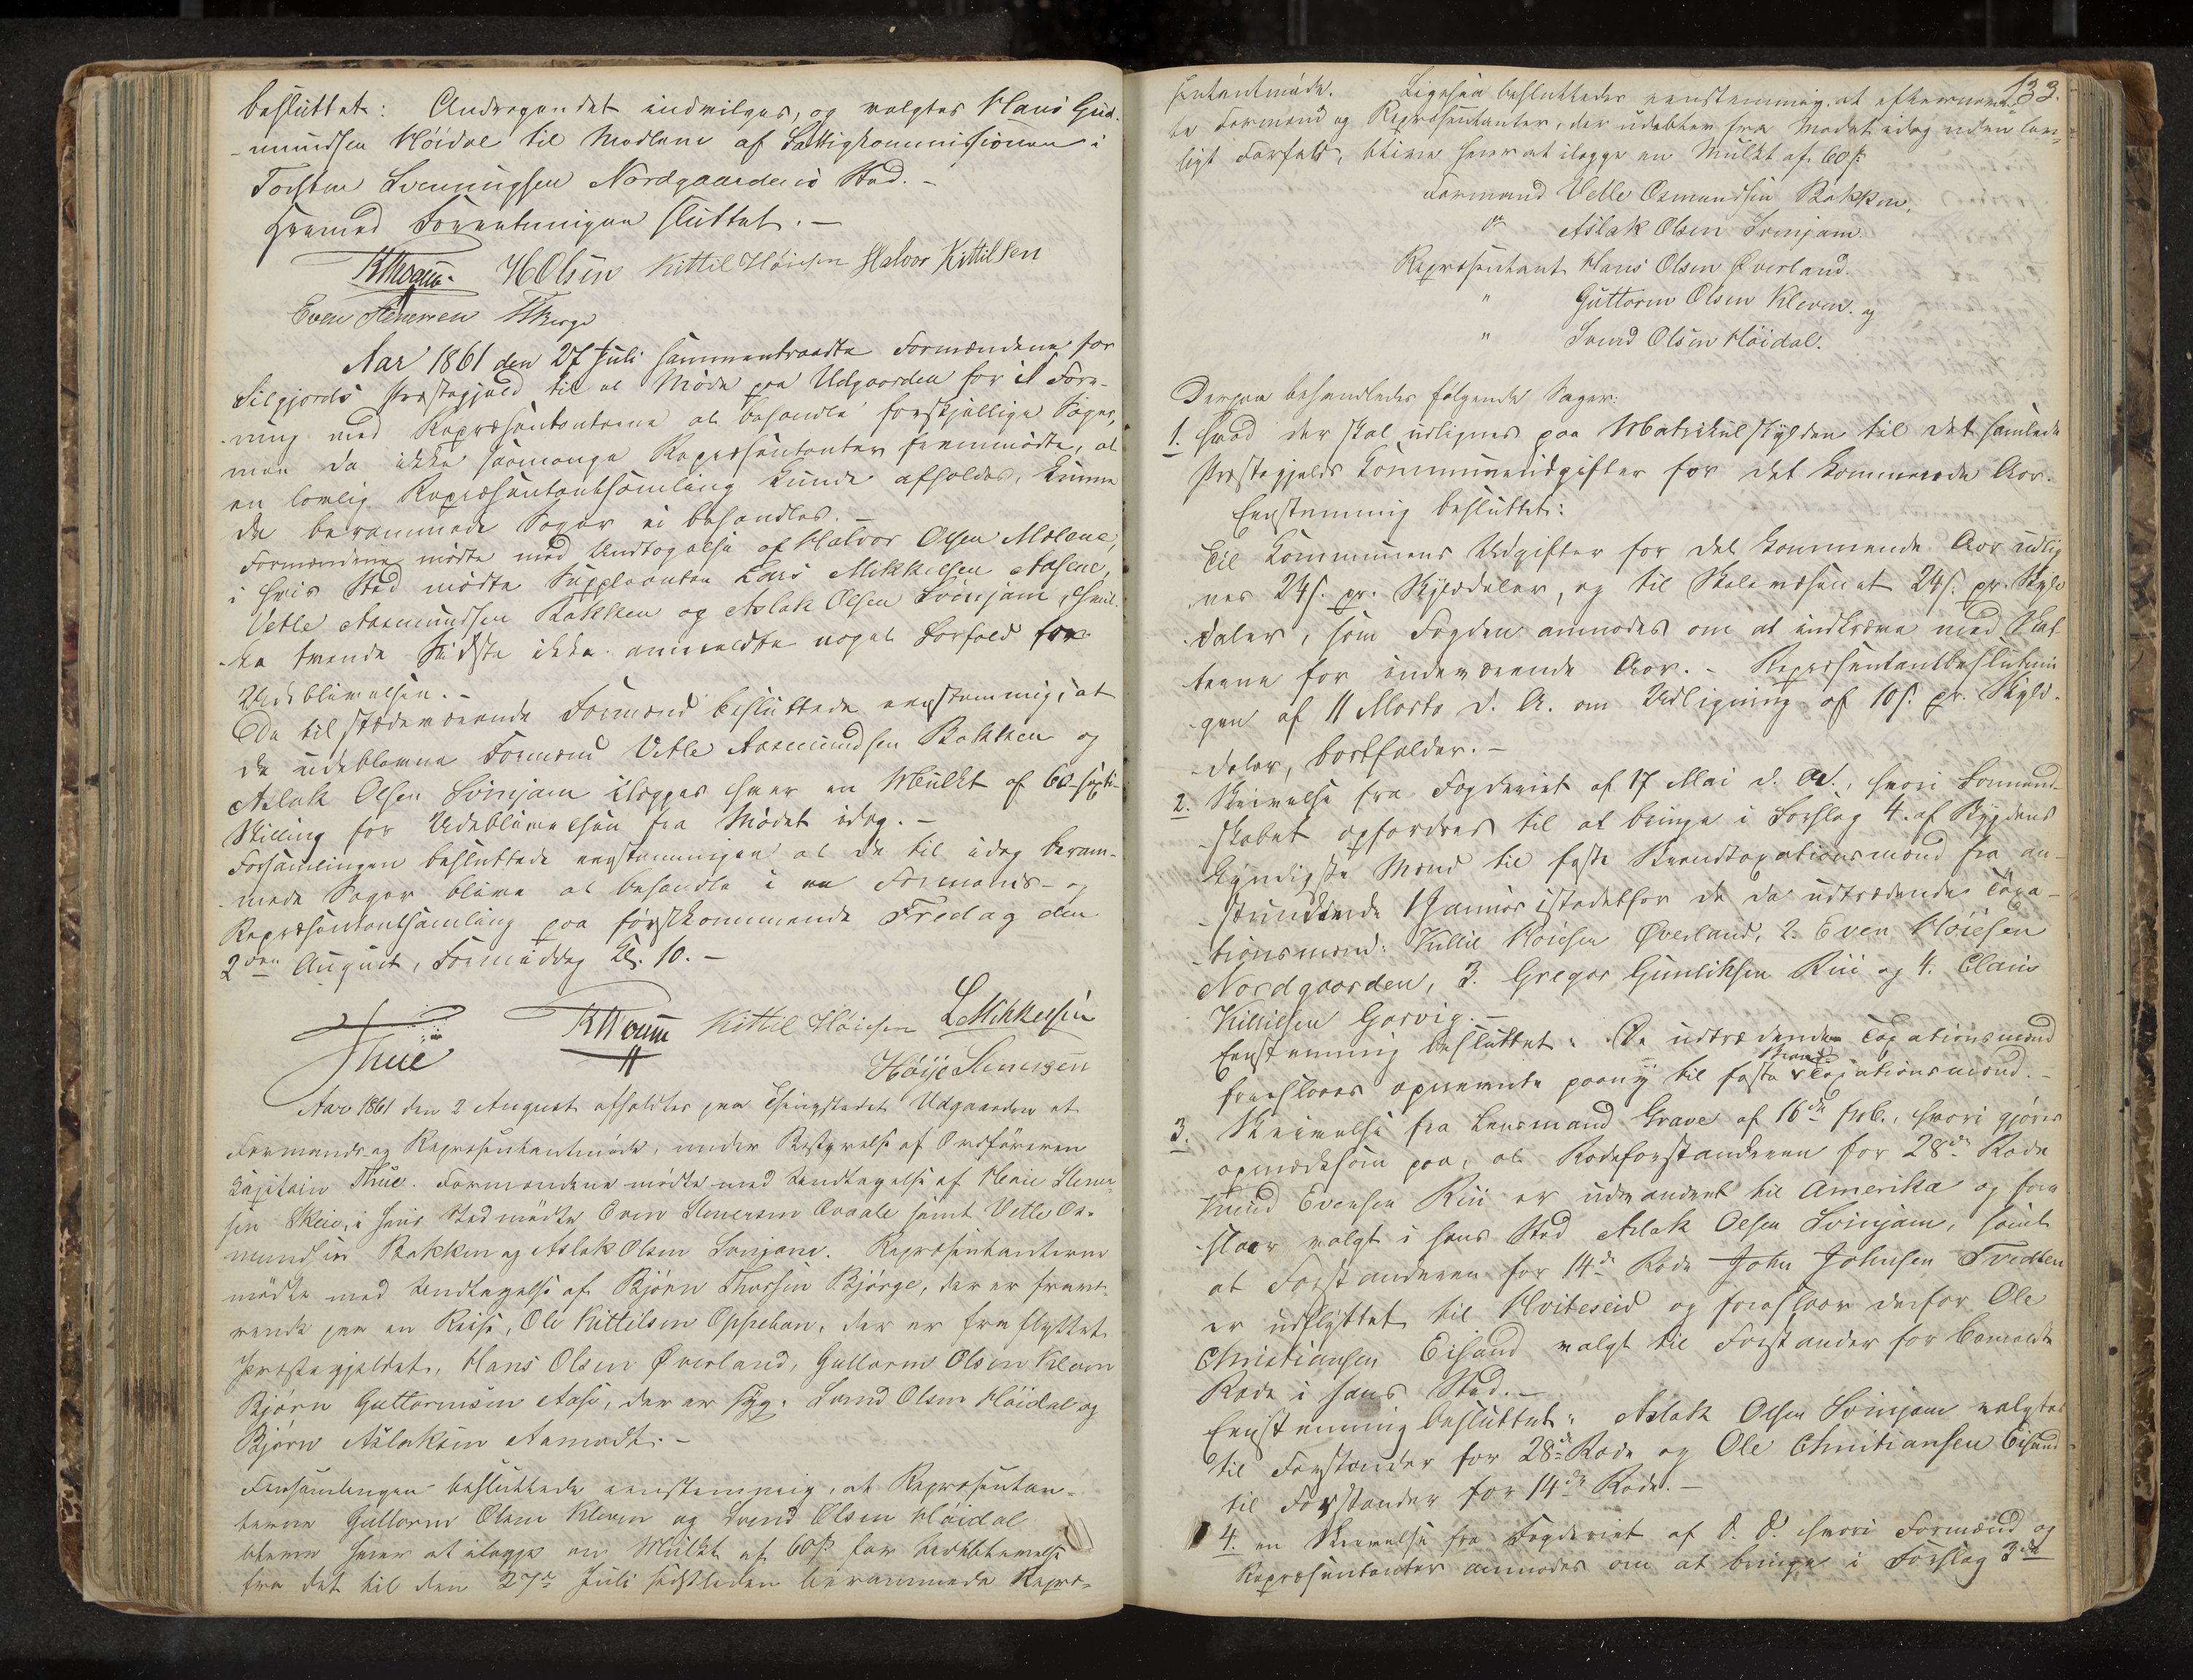 besluttet: Andragendet indvilges, og valgtes Hans Gud-
-mundsen Höidal til Medlem af Fattigkommisionen i
Torsten Svenningsen Nordgaardens Sted. -
Hermed Forretningen sluttet. -
HOlsen Kittil Höiesen Halvor Kittilsen
Even Stenersen
Aar 1861 den 27 Juli sammentraadte Formændene for
Silgjords Præstegjeld til et Möde paa Udgaarden for i Fore-
-ning med Repræsentanterne at behandle forskjellige Sager,
men da ikke saamange Repræsentanter fremmödte, at
en lovlig Repræsentantsamling kunde afholdes, kunne
de berammede Sager ei behandles. -
Formændene mödte med Undtagelse af Halvor Olsen Molene,
i hvis Sted mödte Suppleanten Lars Mikkelsen Aasene,
Vetle Aasmundsen Bakken og Aslak Olsen Svinjam, hvil-
-ke tvende Sidste ikke anmeldte noget Forfald for
Udeblivelsen. -
De tilstedeværende Formænd besluttede eenstemmig, at
de udeblevne Formænd Vetle Aasmundsen Bakken og
Aslak Olsen Svinjam ilægges hver en Mulkt af 60 -sexti-
Skilling for Udeblivelsen fra Mödet idag. -
Forsamlingen besluttede eenstemmigen at de til idag beram-
-mede Sager blive at behandle i en Formands- og
Repræsentantsamling paa förstkommende Fredag den
2den August, Formiddag Kl. 10. -
Thue Kittil Höiesen LMikkelsen
Höije Stenersen
Aar 1861 den 2 August afholdtes paa Thingstedet Udgaarden et
Formands og Repræsentantmöde, under Bestyrelse af Ordföreren
Capitain Thue. Formændene mödte med Undtagelse af Höie Stener-
sen Skeie, i hvis Sted mödte Even Stenersen Qvaale samt Vetle Os-
mundsen Bakken og Aslak Olsen Svinjam. Repræsentanterne
mödte med Undtagelse af Björn Thorsen Björge, der er fravæ-
rende paa en Reise, Ole Kittilsen Oppeboen, der er fraflyttet
Præstegjeldet, Hans Olsen Överland, Guttorm Olsen Kleven
Björn Guttormsen Aase, der er syg. Svend Olsen Höidal og
Björn Aslaksen Aamodt. -
Forsamlingen besluttede eenstemmig, at Repræsentan-
terne Guttorm Olsen Kleven og Svend Olsen Höidal
bliver hver at ilægge en Mulkt af 60 ß for Udeblivelse
fra det til den 27de Juli sidstleden berammede Repræ-
133.
sentantmöde. Ligesaa besluttedes eenstemmig, at efternævn-
te Formænd og Repræsentanter, der udebliver fra Mödet idag uden lov-
ligt Forfald, blive hver at ilægge en Mulkt af 60 ß.
Formand Vetle Osmundsen Bakken.
do Aslak Olsen Svinjam.
Repræsentant Hans Olsen Överland.
" Guttorm Olsen Kleven. og
" Svend Olsen Höidal.
Derpaa behandledes fölgende Sager:
1. Hvad der skal udlignes paa Matrikulskylden til det samlede
Præstegjelds Communeudgifter for det kommende Aar.
Eenstemmig besluttet:
Til Kommunens Udgifter for det kommende Aar udlig-
nes 24 ß. pr. Skylddaler, og til Skolevæsenet 24 ß. pr. Skyld
-daler, som Fogden anmodes om at indkræve med Skat-
-terne for indeværende Aar. - Repræsentantbeslutnin
-gen af 11 Marts d. A. om Udligning af 10 ß. pr. Skyld-
-daler, bortfalder. -
2. Skrivelse fra Fogderiet af 17 Mai d. A., hvori Formand-
-skabet opfordres til at bringe i Forslag 4 af Bygdens
kyndigste Mænd til faste Brandtaxationsmænd fra an-
-stundende 1 Januar istedetfor de da udtrædende Taxa-
-tionsmænd: Kittil Höiesen Överland, 2. Even Höiesen
Nordgaarden, 3. Gregar Gunliksen Rui og 4. Claus
Kittilsen Garvig. -
Eenstemmig besluttet: De udtrædende Taxationsmænd
foreslaaes opnævnte paany til faste Brand Taxationsmænd. -
3. Skrivelse fra Lensmand Grave af 16de Feb., hvori gjöres
opmærksom paa, at Rodeforstanderen for 28de Rode
Knud Evensen Rui er udvandret til Amerika og fore
-slaaer valgt i hans Sted Aslak Olsen Svinjam, samt
at Forstanderen for 14de Rode John Johnsen Tvedten
er udflyttet til Hviteseid og foreslaaer derfor Ole
Christiansen Eisand valgt til Forstander for bemeldte
Rode i hans Sted. -
Eenstemmig besluttet: Aslak Olsen Svinjam valgtes
til Forstander for 28de Rode og Ole Christiansen Eisand
til Forstander for 14de Rode. -
4. en Skrivelse fra Fogderiet af d. D. hvori Formænd og
Repræsentanter anmodes om at bringe i Forslag 3de